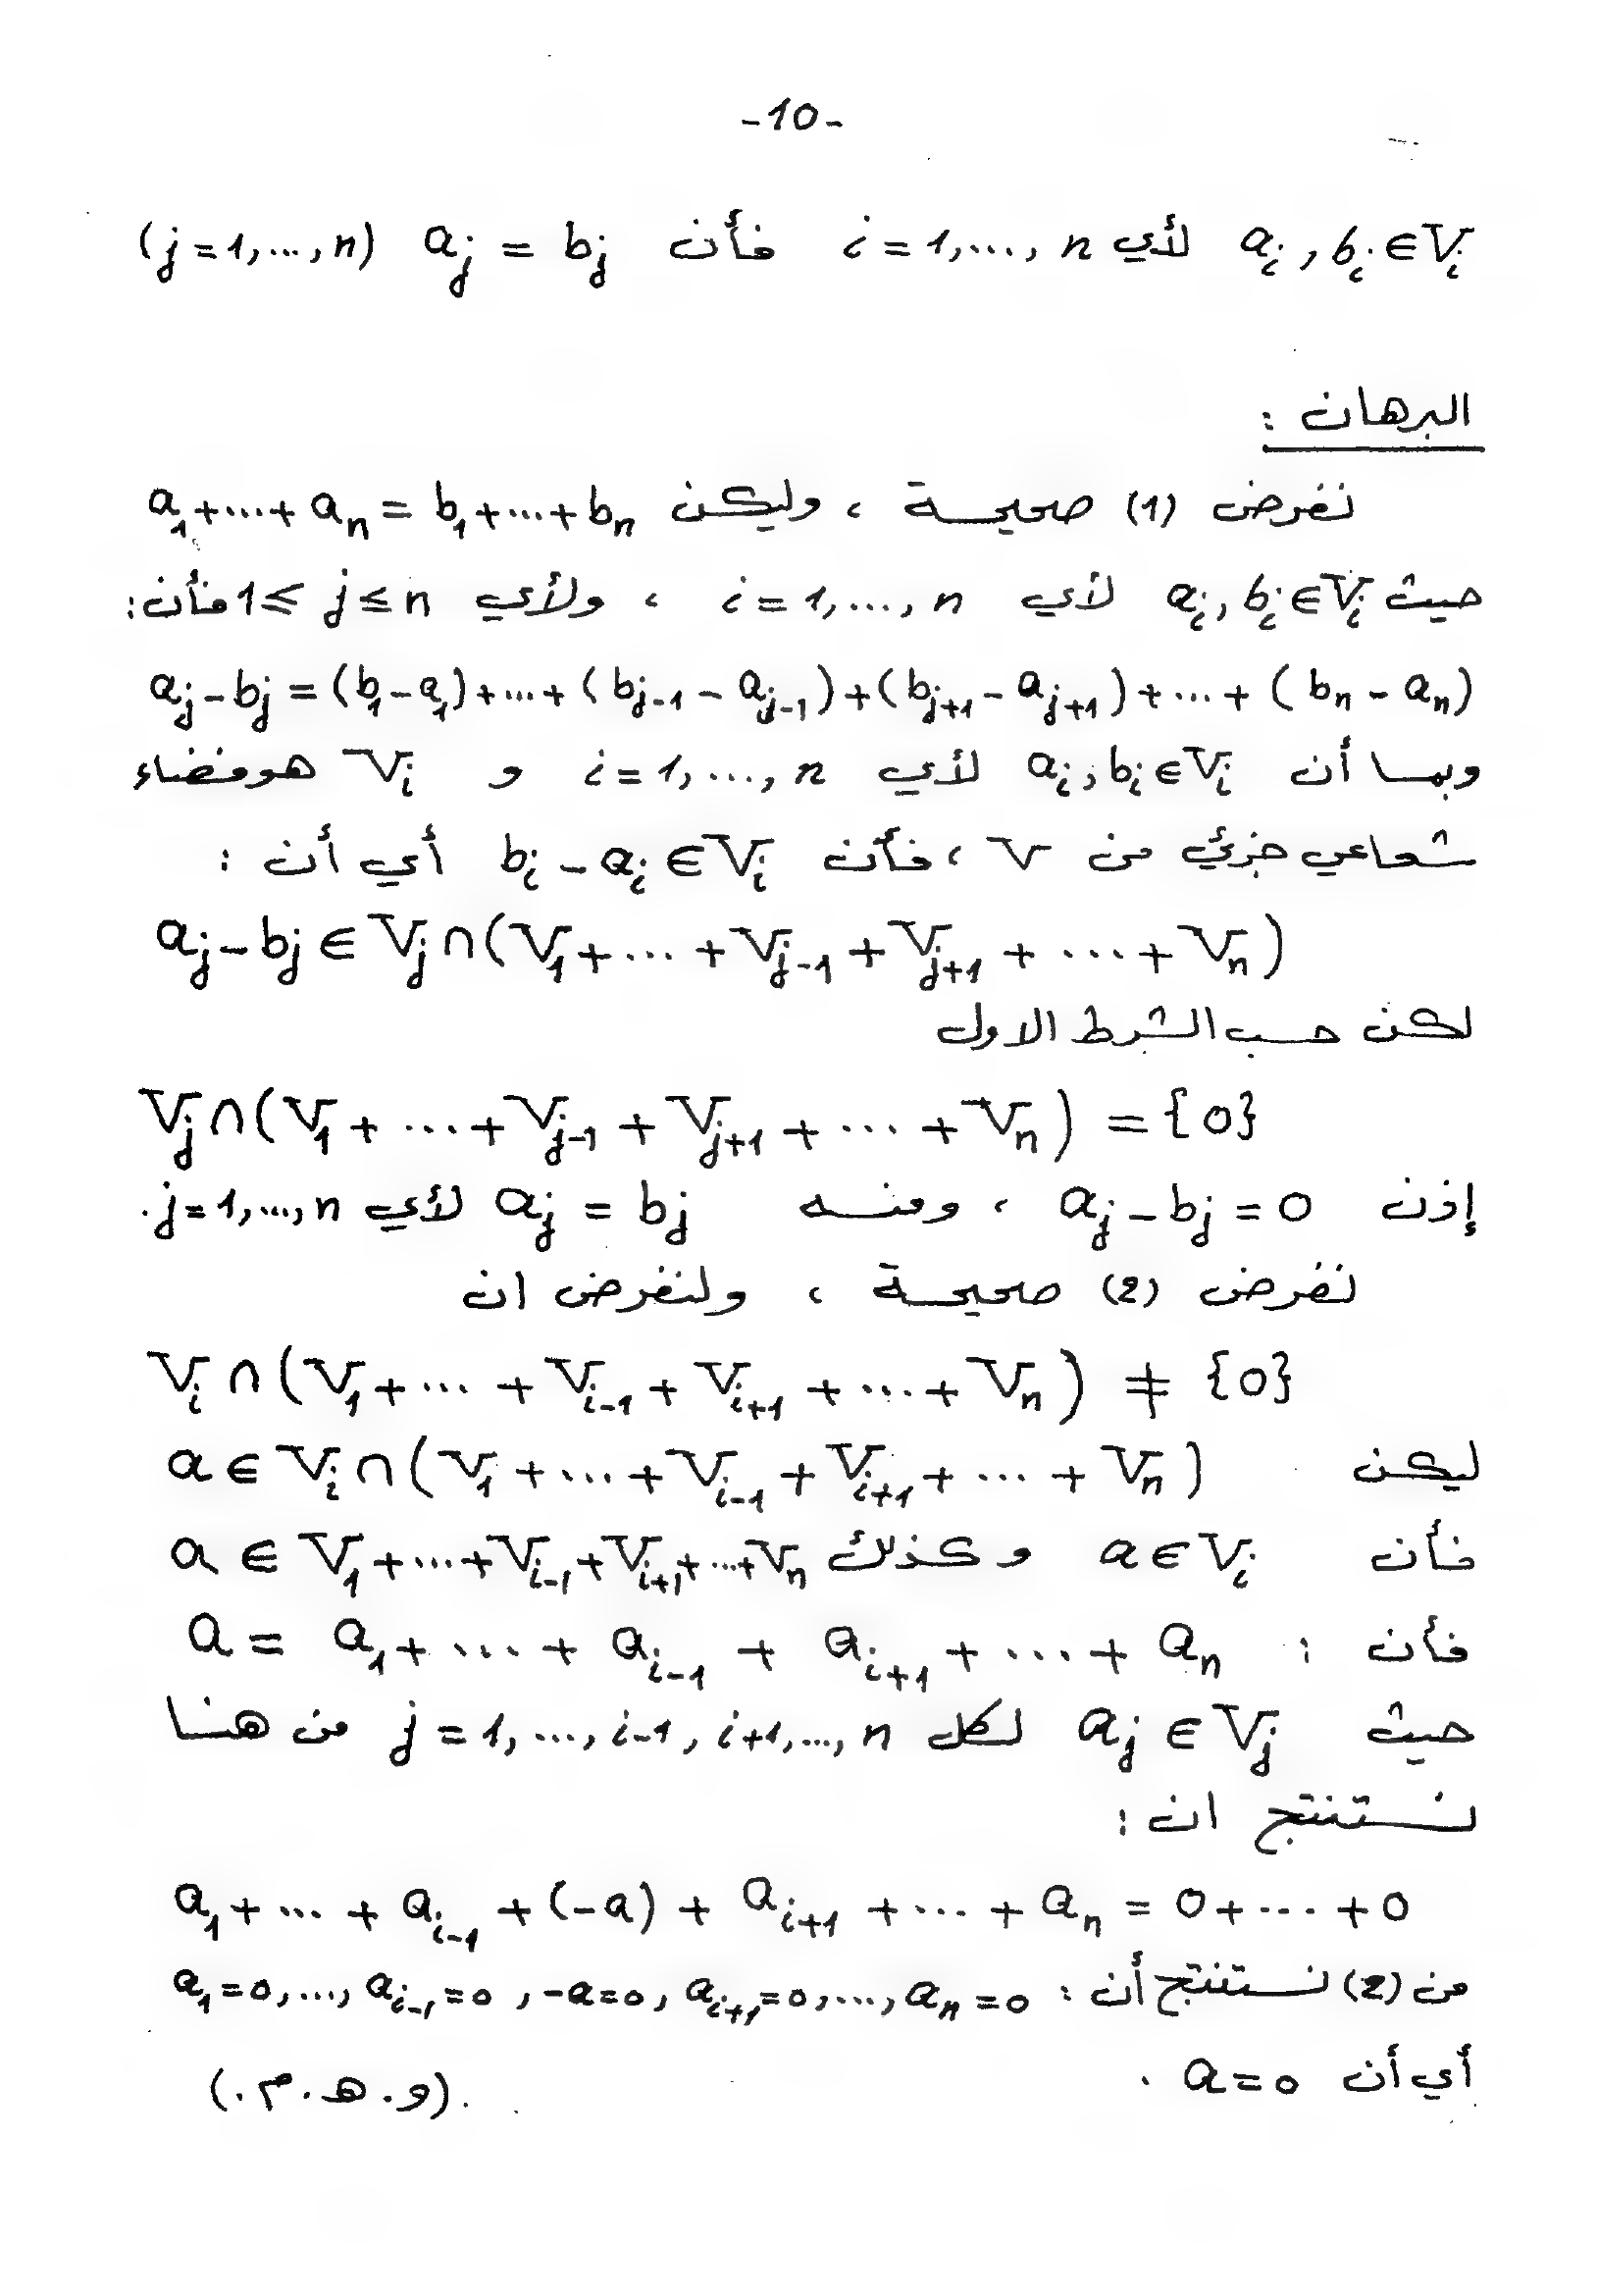 -10-
a_i , b_i ∈ V_i لأي i = 1,..., n فأن a_j = b_j (j = 1,..., n)
البرهان :
نفرض (1) صحيحة ، وليكن a_1 +...+ a_n = b_1 +...+ b_n
حيث a_i , b_i ∈ V_i لأي i = 1,..., n ، ولأي 1 ≤ j ≤ n فأن :
a_j - b_j = (b_1 - a_1) +...+ (b_{j-1} - a_{j-1}) + (b_{j+1} - a_{j+1}) +...+ (b_n - a_n)
وبما أن a_i , b_i ∈ V_i لأي i = 1,..., n و V_i هو فضاء
شعاعي جزئي من V ، فأن b_i - a_i ∈ V_i أي أن :
a_j - b_j ∈ V_j ∩ (V_1 + ... + V_{j-1} + V_{j+1} + ... + V_n)
لكن حسب الشرط الاول
V_j ∩ (V_1 + ... + V_{j-1} + V_{j+1} + ... + V_n) = {0}
إذن a_j - b_j = 0 ، ومنه a_j = b_j لأي j = 1,..., n .
نفرض (2) صحيحة ، ولنفرض ان
V_i ∩ (V_1 + ... + V_{i-1} + V_{i+1} + ... + V_n) ≠ {0}
ليكن a ∈ V_i ∩ (V_1 + ... + V_{i-1} + V_{i+1} + ... + V_n)
فأن a ∈ V_i وكذلك a ∈ V_1 +...+ V_{i-1} + V_{i+1} +...+ V_n
فأن : a = a_1 + ... + a_{i-1} + a_{i+1} + ... + a_n
حيث a_j ∈ V_j لكل j = 1,..., i-1, i+1,..., n من هنا
نستنتج ان :
a_1 + ... + a_{i-1} + (-a) + a_{i+1} + ... + a_n = 0 + ... + 0
من (2) نستنتج أن : a_1 = 0,..., a_{i-1} = 0 , -a = 0, a_{i+1} = 0,..., a_n = 0
أي أن a = 0 . (و . هـ . م .) .